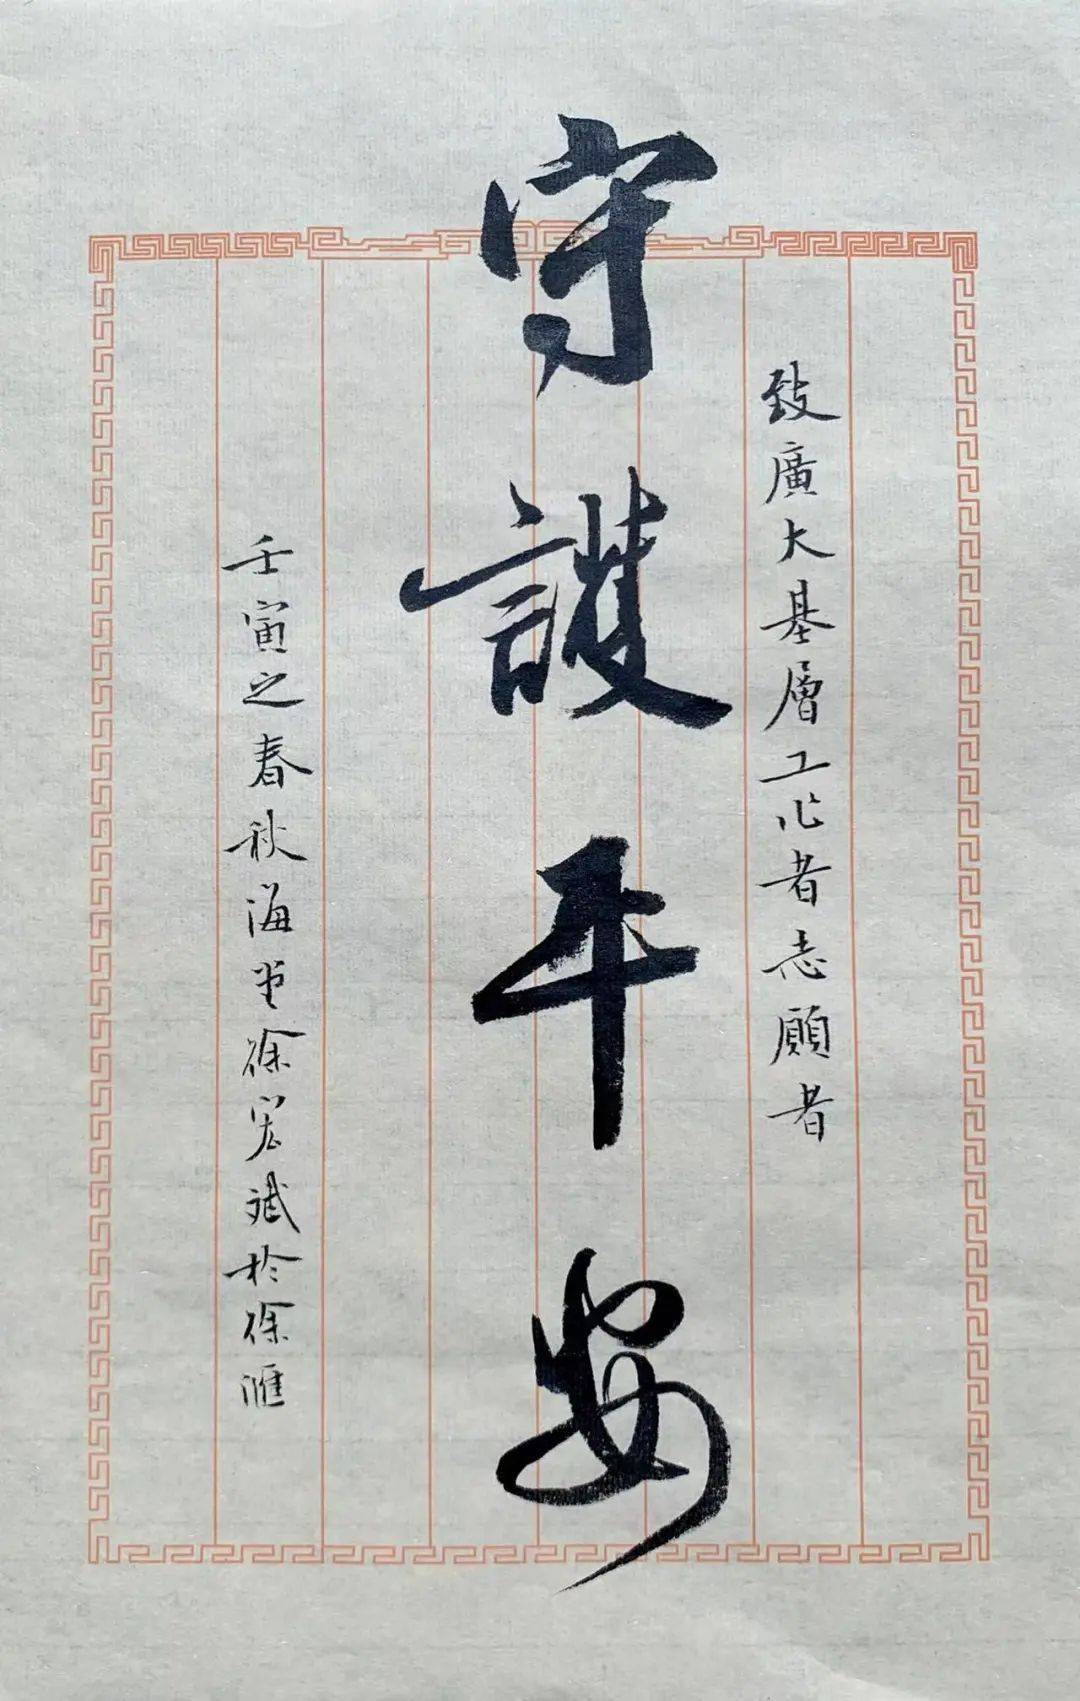 致廣大基層工作者志願者
守護平安
壬寅之春秋海堂徐宏斌於徐滙